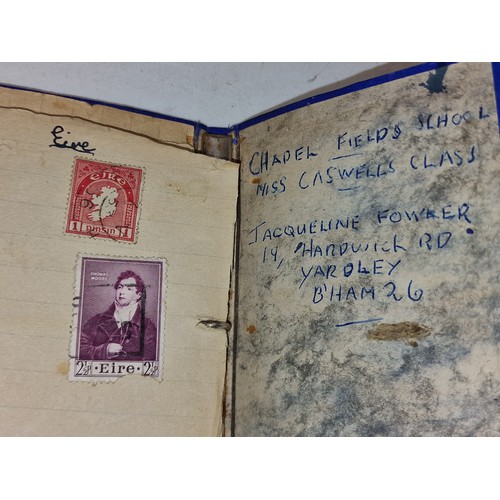 Eire
EIRE
1 PINGIN 1
THOMAS
MOORE
2½ · Eire · 2½
CHAPEL FIELDS SCHOOL
MISS CASWELLS CLASS
JACQUELINE FOWKER
14, HARDWICK RD
YARDLEY
B'HAM 26